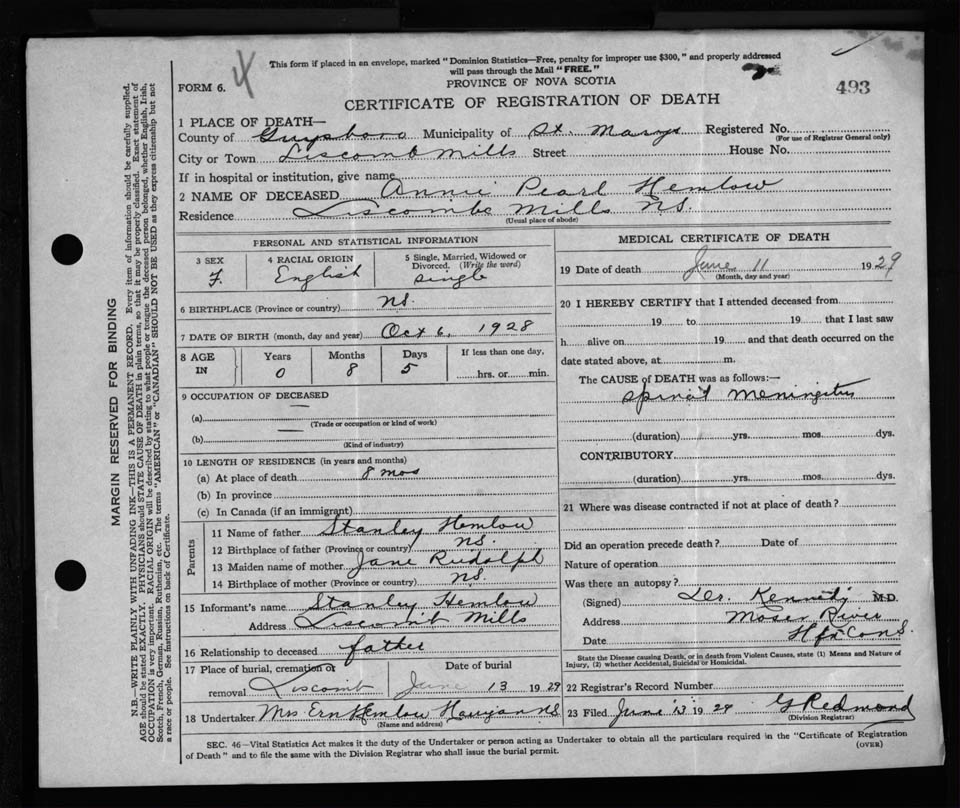 This form if placed in an envelope, marked "Dominion Statistics—Free, penalty for improper use $300," and properly addressed
will pass through the Mail "FREE."
FORM 6. 4 PROVINCE OF NOVA SCOTIA 493
CERTIFICATE OF REGISTRATION OF DEATH
1 PLACE OF DEATH—
County of Guysboro Municipality of St. Marys Registered No.
(For use of Registrar General only)
City or Town Liscomb Mills Street House No.
If in hospital or institution, give name
2 NAME OF DECEASED Annie Pearl Hemlow
Residence Liscombe Mills N.S.
(Usual place of abode)
PERSONAL AND STATISTICAL INFORMATION
3 SEX F. 4 RACIAL ORIGIN English 5 Single, Married, Widowed or Divorced. (Write the word) single
6 BIRTHPLACE (Province or country) N.S.
7 DATE OF BIRTH (month, day and year) Oct 6, 1928
8 AGE IN Years 0 Months 8 Days 5 If less than one day, hrs. or min.
9 OCCUPATION OF DECEASED
(a) —
(Trade or occupation or kind of work)
(b) —
(Kind of industry)
10 LENGTH OF RESIDENCE (in years and months)
(a) At place of death 8 mos
(b) In province
(c) In Canada (if an immigrant)
Parents
11 Name of father Stanley Hemlow
12 Birthplace of father (Province or country) N.S.
13 Maiden name of mother Jane Rudolph
14 Birthplace of mother (Province or country) N.S.
15 Informant's name Stanley Hemlow
Address Liscomb Mills
16 Relationship to deceased father
17 Place of burial, cremation or removal Liscomb Date of burial June 13 1929
18 Undertaker Mrs Ern Hemlow N.S.
(Name and address)
MEDICAL CERTIFICATE OF DEATH
19 Date of death June 11 1929
(Month, day and year)
20 I HEREBY CERTIFY that I attended deceased from
19 to 19 that I last saw
h alive on 19 and that death occurred on the
date stated above, at m.
The CAUSE of DEATH was as follows:—
Spinal Meningitus
(duration) yrs. mos. dys.
CONTRIBUTORY.
(duration) yrs. mos. dys.
21 Where was disease contracted if not at place of death?
Did an operation precede death? Date of
Nature of operation
Was there an autopsy?
(Signed) Dr. Kennedy M.D.
Address Moser River
Date Hfx Co N.S.
State the Disease Causing Death, or in death from Violent Causes, state (1) Means and Nature of
Injury, (2) whether Accidental, Suicidal or Homicidal.
22 Registrar's Record Number
23 Filed June 13 1929 G Redmond
(Division Registrar)
SEC. 46—Vital Statistics Act makes it the duty of the Undertaker or person acting as Undertaker to obtain all the particulars required in the "Certificate of Registration
of Death" and to file the same with the Division Registrar who shall issue the burial permit.
(OVER)
MARGIN RESERVED FOR BINDING
N.B.—WRITE PLAINLY WITH UNFADING INK—THIS IS A PERMANENT RECORD. Every item of information should be carefully supplied.
AGE should be stated EXACTLY. PHYSICIANS should STATE CAUSE OF DEATH in plain terms, so that it may be properly classified. Exact statement of
OCCUPATION is very important. RACIAL ORIGIN will be described by stating to what people or tongue the deceased person belonged, whether English, Irish,
Scotch, French, German, Russian, Ruthenian, etc. The terms "AMERICAN" or "CANADIAN" SHOULD NOT BE USED as they express citizenship but not
a race or people. See instructions on back of Certificate.